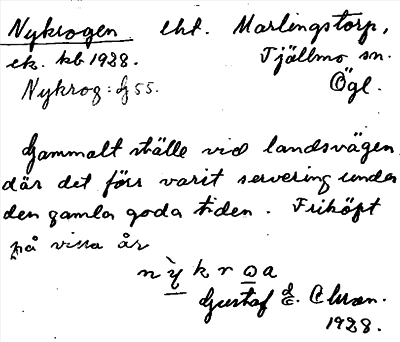 Nykrogen lht. Marlingstorp,
ek. kb 1928. Tjällmo sn.
Nykrog: G 55. Ögl.
Gammalt ställe vid landsvägen
där det förr varit servering under
den gamla goda tiden. Friköpt
på vissa år
nỳkrωa
Gustaf E.
1928.